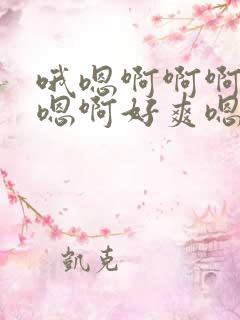 哦嗯啊啊啊
嗯啊好爽嗯
凯克